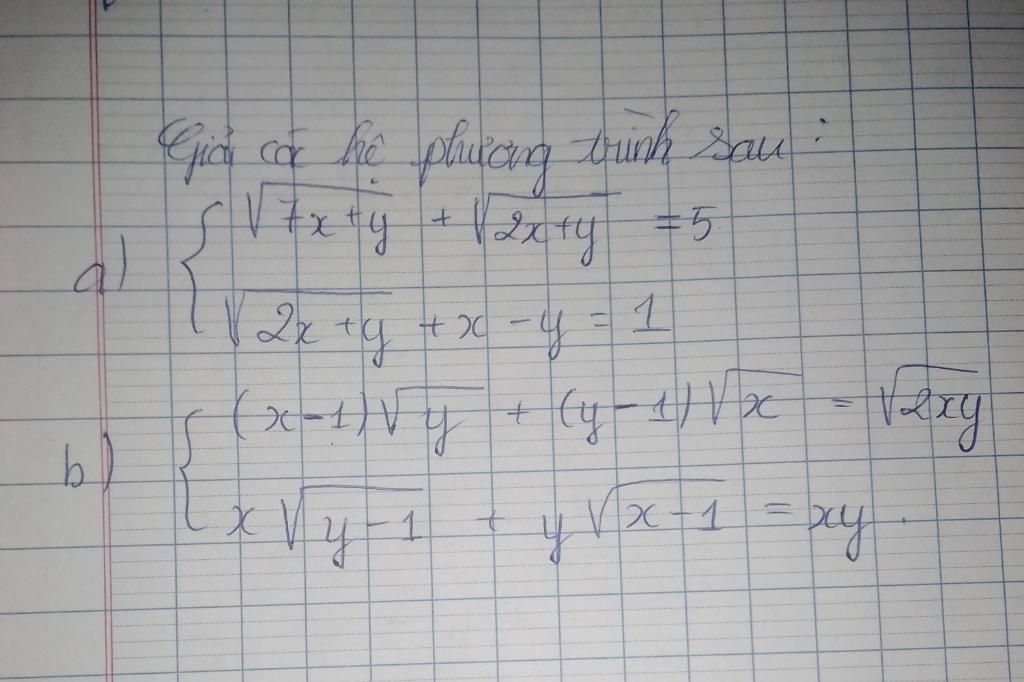 Giải các hệ phương trình sau :
a) { √(7x+y) + √(2x+y) = 5
√(2x+y) + x - y = 1
b) { (x-1)√y + (y-1)√x = √(2xy)
x√(y-1) + y√(x-1) = xy.